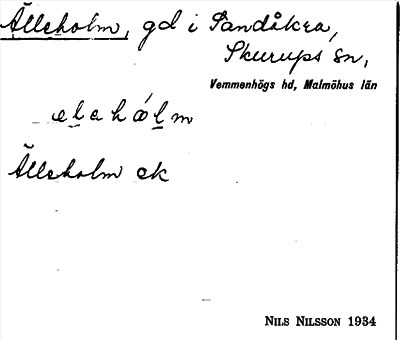 Älleholm, gd i Sandåkra,
Skurups sn,
Vemmenhögs hd, Malmöhus län
Älleholm ek
NILS NILSSON 1934